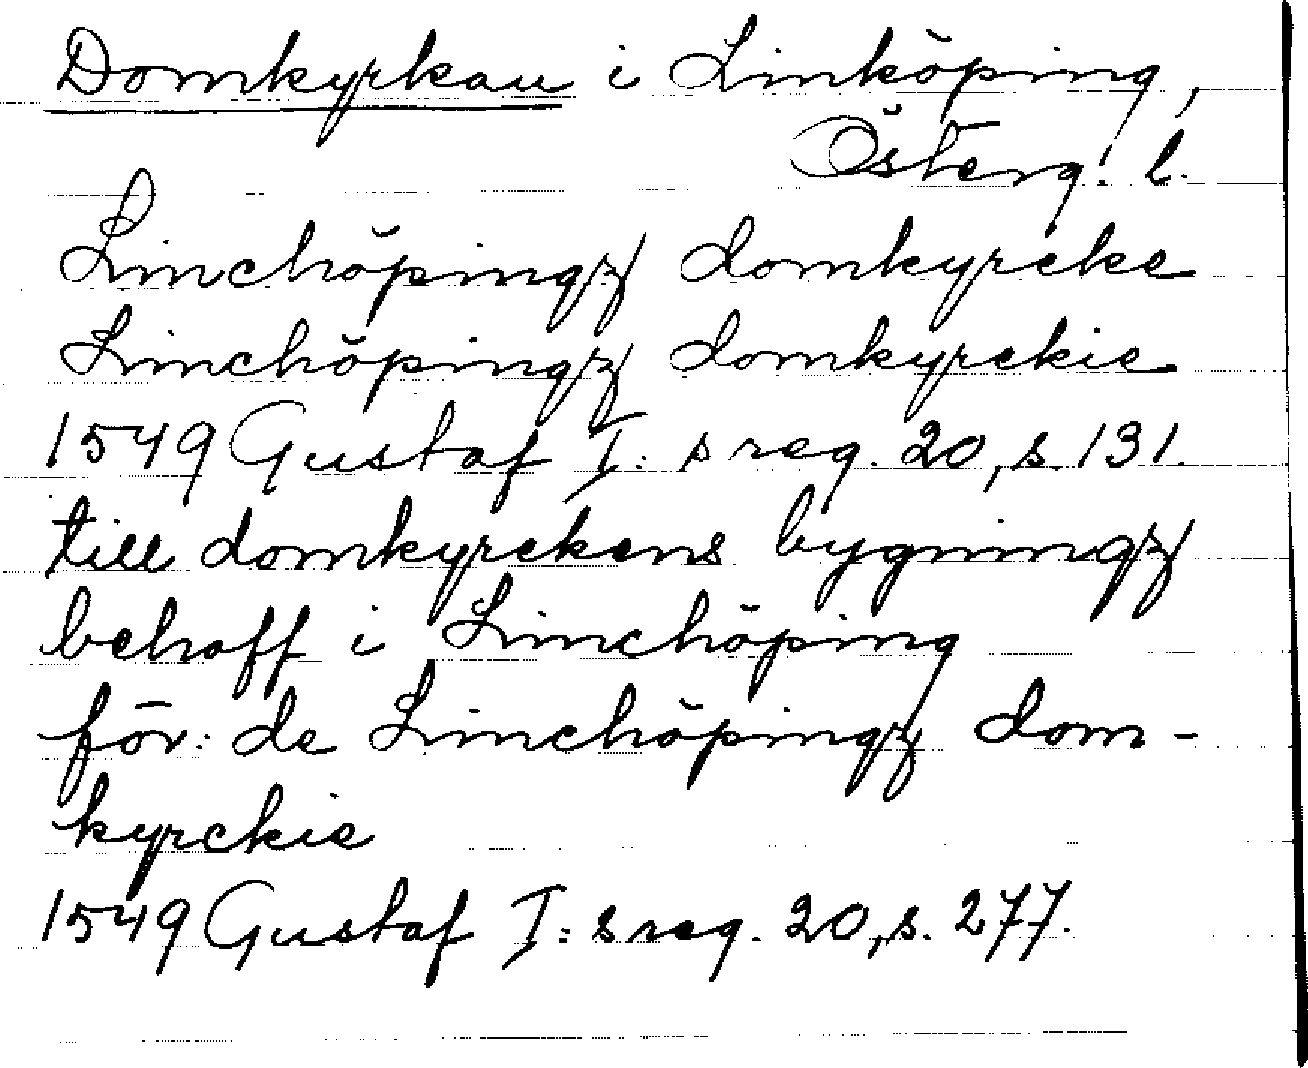 Domkyrkan i Linköping,
Österg. l.
Linchöpingz domkyrcke
Linchöpingz domkyrckie
1549 Gustaf I: s reg. 20, s. 131.
till domkyrckens bygningz
behoff i Linchöping
för: de Linchöpingz dom-
kyrckie
1549 Gustaf I: s reg. 20, s. 277.